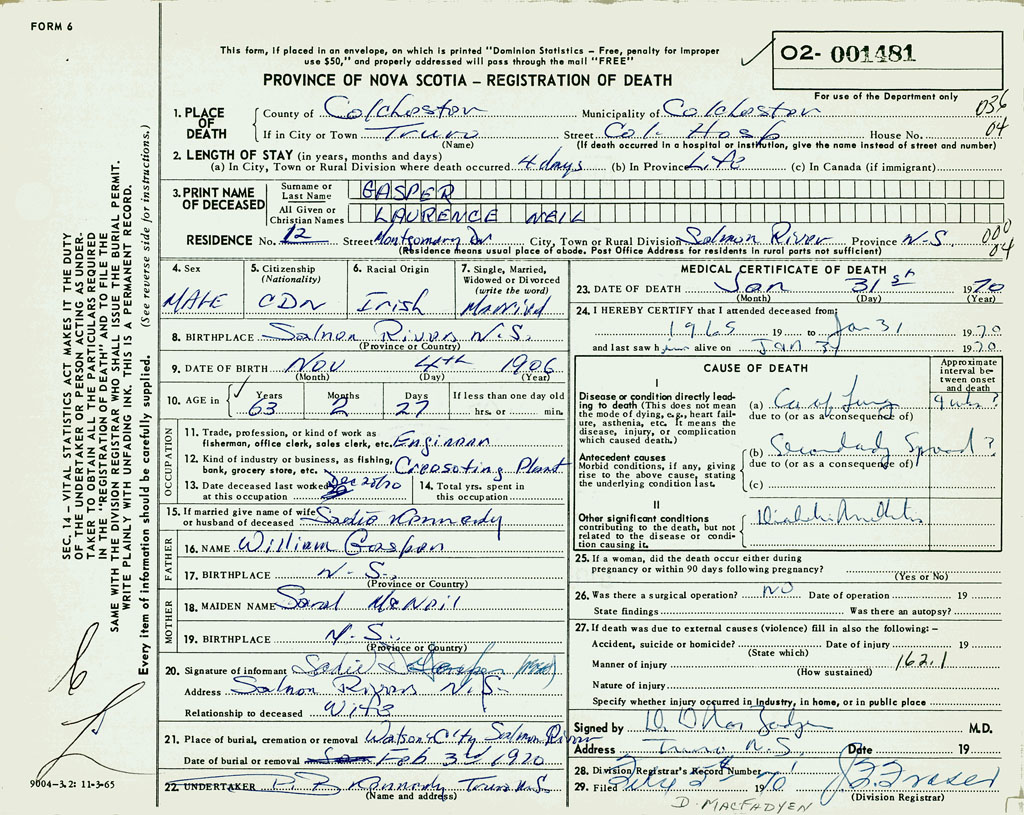 FORM 6
This form, if placed in an envelope, on which is printed "Dominion Statistics – Free, penalty for improper
use $50," and properly addressed will pass through the mail "FREE"
PROVINCE OF NOVA SCOTIA – REGISTRATION OF DEATH
O2- 001481
For use of the Department only
036
04
1. PLACE OF DEATH County of Colchester Municipality of Colchester
If in City or Town Truro Street Col. Hosp House No.
(Name) (If death occurred in a hospital or institution, give the name instead of street and number)
2. LENGTH OF STAY (in years, months and days)
(a) In City, Town or Rural Division where death occurred 4 days (b) In Province Life (c) In Canada (if immigrant)
3. PRINT NAME OF DECEASED Surname or Last Name GASPER
All Given or Christian Names LAURENCE NEIL
RESIDENCE No. 12 Street Montgomery Dr City, Town or Rural Division Salmon River Province N.S.
(Residence means usual place of abode. Post Office Address for residents in rural parts not sufficient)
000
04
4. Sex MALE
5. Citizenship (Nationality) CDN
6. Racial Origin Irish
7. Single, Married, Widowed or Divorced (write the word) Married
8. BIRTHPLACE Salmon River N.S.
(Province or Country)
9. DATE OF BIRTH Nov 4th 1906
(Month) (Day) (Year)
10. AGE in Years 63 Months 2 Days 27 If less than one day old hrs. or min.
OCCUPATION
11. Trade, profession, or kind of work as fisherman, office clerk, sales clerk, etc. Engineer
12. Kind of industry or business, as fishing, bank, grocery store, etc. Creosoting Plant
13. Date deceased last worked at this occupation Dec 20/70
14. Total yrs. spent in this occupation
15. If married give name of wife or husband of deceased Sadie Kennedy
FATHER
16. NAME William Gasper
17. BIRTHPLACE N.S.
(Province or Country)
MOTHER
18. MAIDEN NAME Sarah McNeil
19. BIRTHPLACE N.S.
(Province or Country)
20. Signature of informant Sadie Gasper
Address Salmon River N.S.
Relationship to deceased Wife
21. Place of burial, cremation or removal Watson City Salmon River
Date of burial or removal Feb 3rd 1970
22. UNDERTAKER Kennedy Truro N.S.
(Name and address)
MEDICAL CERTIFICATE OF DEATH
23. DATE OF DEATH Jan 31st 1970
(Month) (Day) (Year)
24. I HEREBY CERTIFY that I attended deceased from:
1965 19 to Jan 31 1970
and last saw him alive on Jan 31 1970
CAUSE OF DEATH
Approximate interval between onset and death
I
Disease or condition directly leading to death (This does not mean the mode of dying, e.g., heart failure, asthenia, etc. It means the disease, injury, or complication which caused death.)
(a) Ca of Lung
due to (or as a consequence of)
Antecedent causes
Morbid conditions, if any, giving rise to the above cause, stating the underlying condition last.
(b) Secondary Spread ?
due to (or as a consequence of)
(c)
II
Other significant conditions contributing to the death, but not related to the disease or condition causing it.
Diabetes Mellitus
25. If a woman, did the death occur either during pregnancy or within 90 days following pregnancy?
(Yes or No)
26. Was there a surgical operation? NO Date of operation 19
State findings Was there an autopsy?
27. If death was due to external causes (violence) fill in also the following: –
Accident, suicide or homicide? Date of injury 19
(State which)
Manner of injury 162.1
(How sustained)
Nature of injury
Specify whether injury occurred in industry, in home, or in public place
Signed by M.D.
Address Truro N.S. Date 19
28. Division Registrar's Record Number
29. Filed 1970 Fraser
(Division Registrar)
D. MACFADYEN
SEC. 14 – VITAL STATISTICS ACT MAKES IT THE DUTY
OF THE UNDERTAKER OR PERSON ACTING AS UNDER-
TAKER TO OBTAIN ALL THE PARTICULARS REQUIRED
IN THE "REGISTRATION OF DEATH" AND TO FILE THE
SAME WITH THE DIVISION REGISTRAR WHO SHALL ISSUE THE BURIAL PERMIT.
WRITE PLAINLY WITH UNFADING INK. THIS IS A PERMANENT RECORD.
Every item of information should be carefully supplied. (See reverse side for instructions.)
9004–3.2: 11-3-65